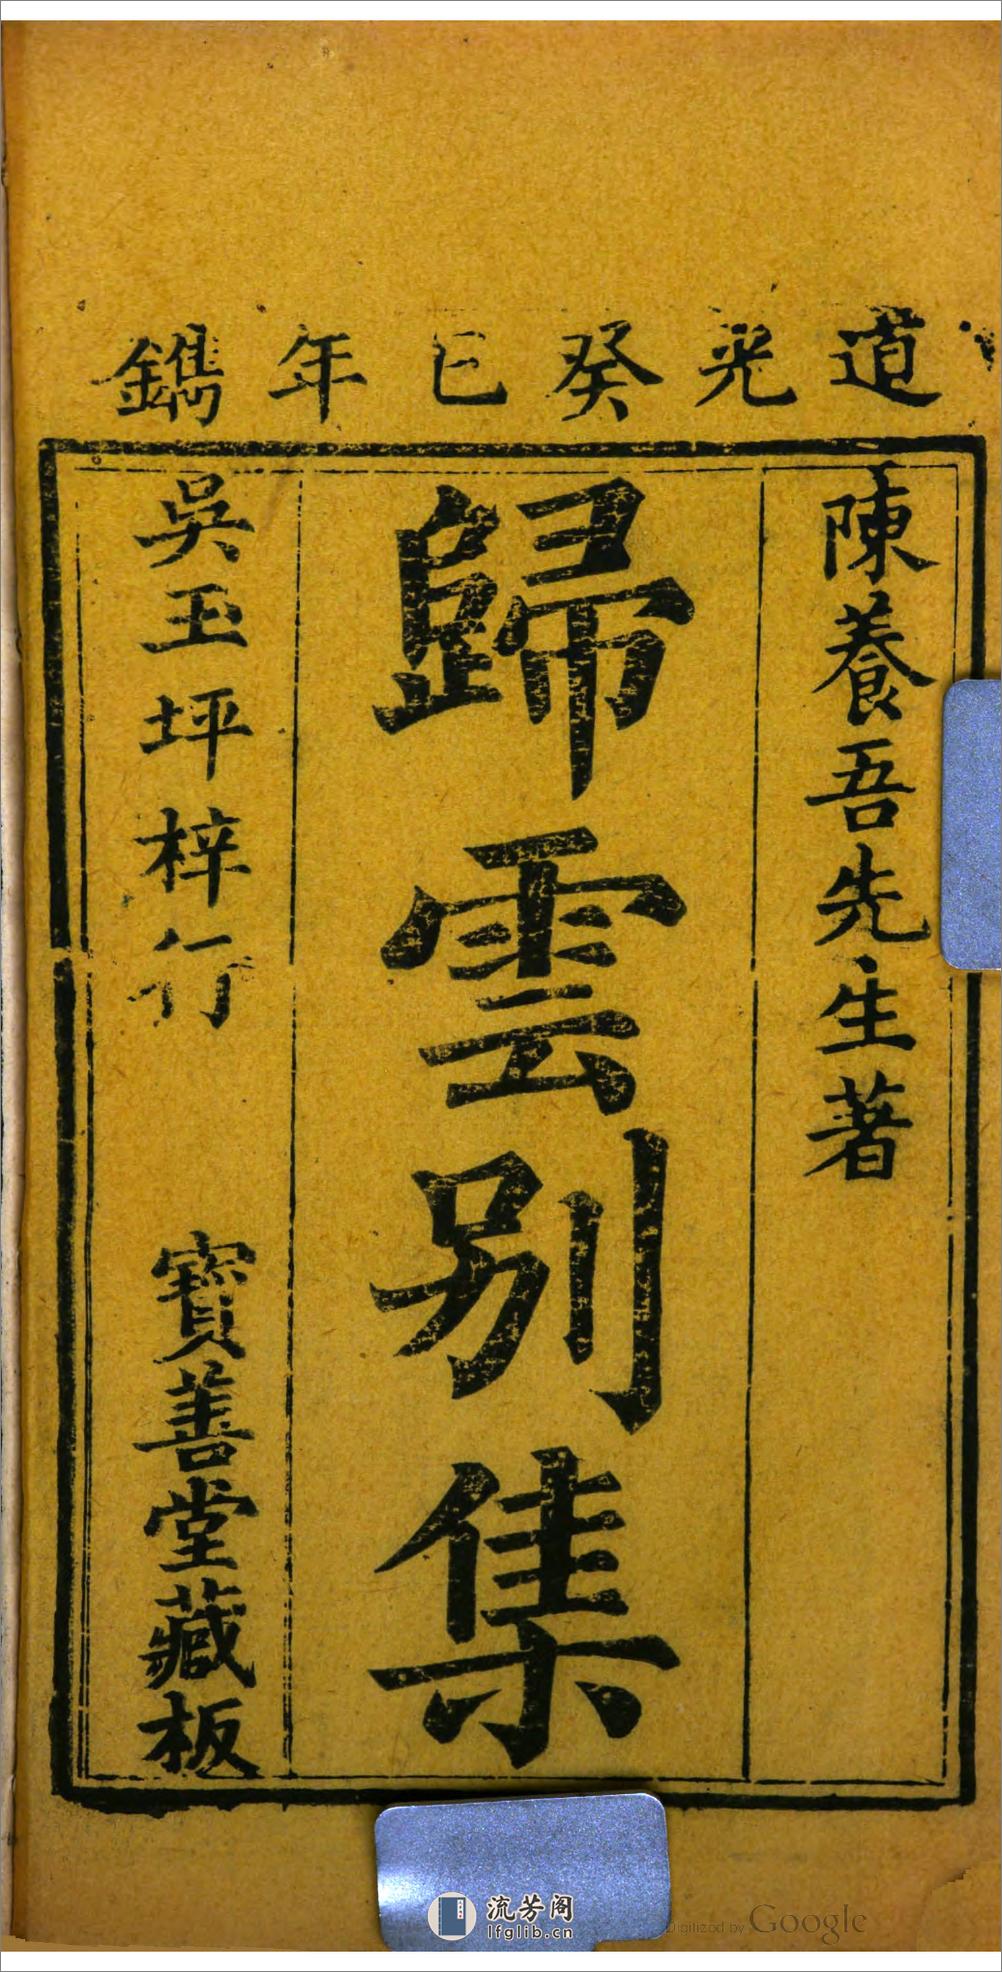 道光癸巳年鐫
陳養吾先生著
歸雲別集
吳玉坪梓行 寶善堂藏板
流芳阁
lfglib.cn
Digitized by Google